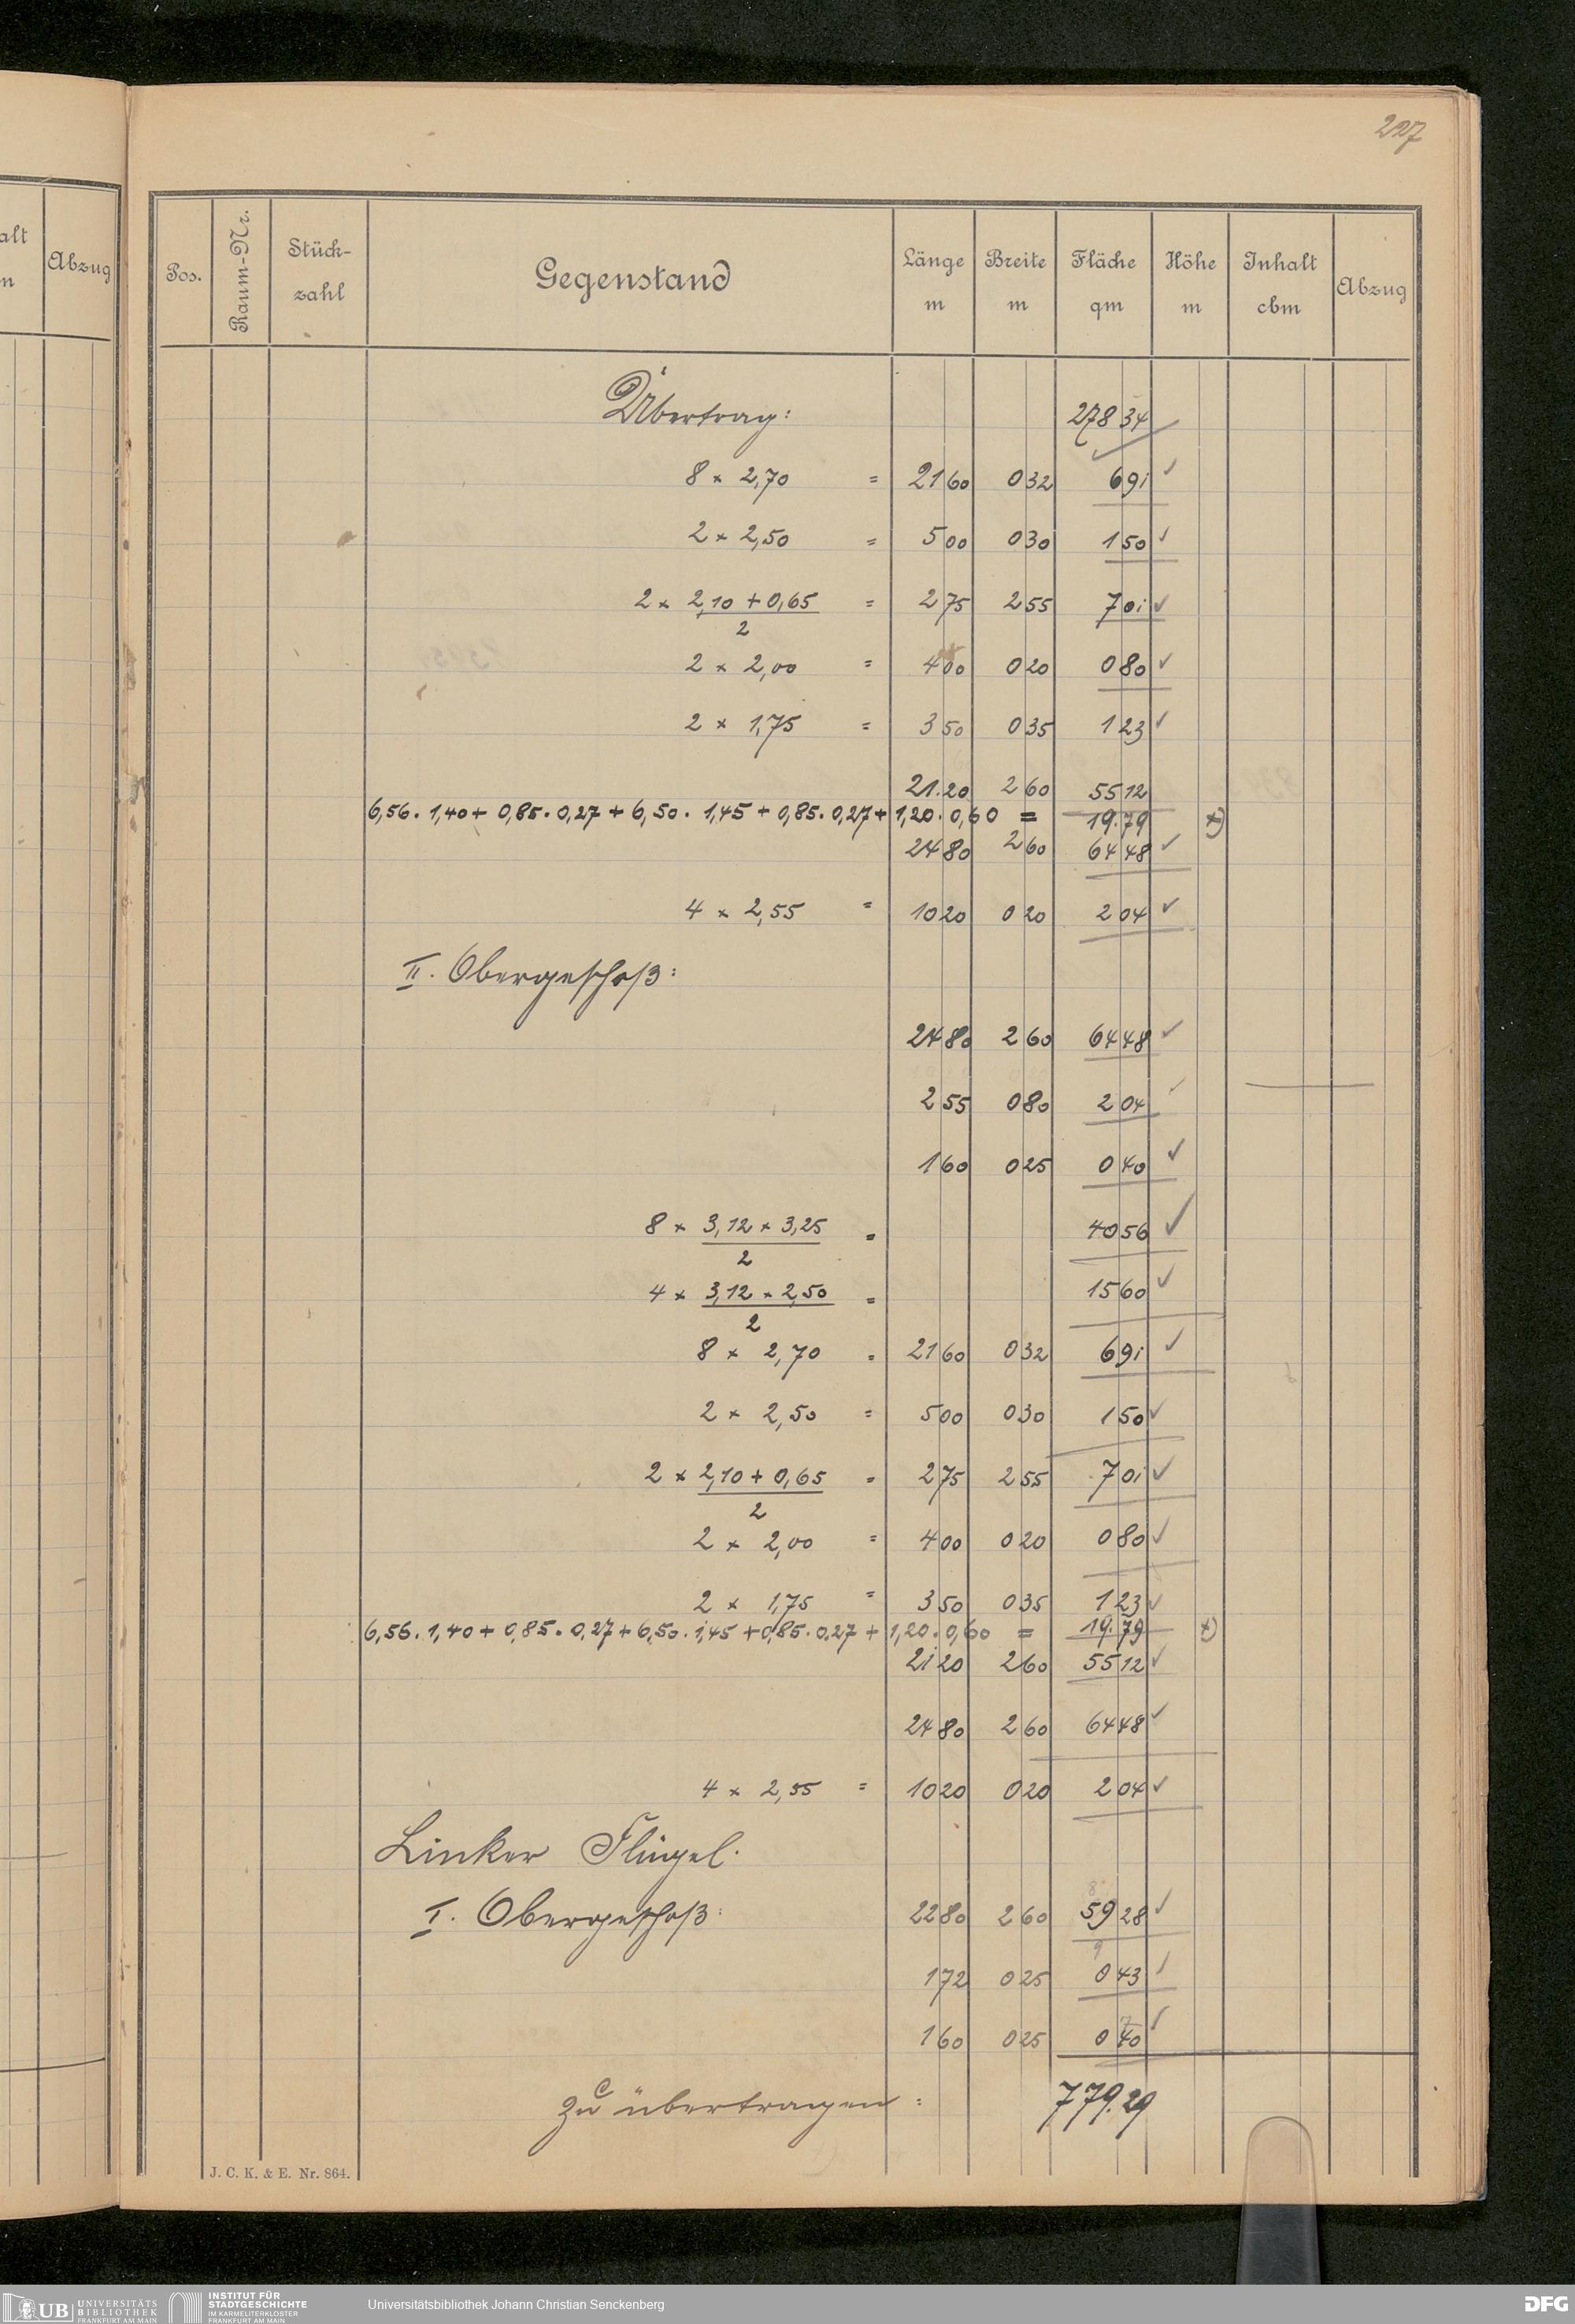 227
alt
m
Abzug
Pos.
Raum-Nr.
Stück-
zahl
Gegenstand
Länge
m
Breite
m
Fläche
qm
Höhe
m
Inhalt
cbm
Abzug
Übertrag: 278 34
8 × 2,70 = 21 60 0 32 6 91 ✓
2 × 2,50 = 5 00 0 30 1 50 ✓
2 × 2,10 + 0,65 = 2 75 2 55 7 01 ✓
2
2 × 2,00 = 4 00 0 20 0 80 ✓
2 × 1,75 = 3 50 0 35 1 23 ✓
21.20 2 60 55 12
6,56 . 1,40 + 0,85 . 0,27 + 6,50 . 1,45 + 0,85 . 0,27 + 1,20 . 0,60 = 19.79 +)
24 80 2 60 64 48 ✓
4 × 2,55 = 10 20 0 20 2 04 ✓
II. Obergeschoß:
24 80 2 60 64 48 ✓
2 55 0 80 2 04 ✓
1 60 0 25 0 40 ✓
8 × 3,12 × 3,25 = 40 56 ✓
2
4 × 3,12 × 2,50 = 15 60 ✓
2
8 × 2,70 = 21 60 0 32 6 91 ✓
2 × 2,50 = 5 00 0 30 1 50 ✓
2 × 2,10 + 0,65 = 2 75 2 55 7 01 ✓
2
2 × 2,00 = 4 00 0 20 0 80 ✓
2 × 1,75 = 3 50 0 35 1 23 ✓
6,56 . 1,40 + 0,85 . 0,27 + 6,50 . 1,45 + 0,85 . 0,27 + 1,20 . 0,60 = 19.79 +)
21 20 2 60 55 12 ✓
24 80 2 60 64 48 ✓
4 × 2,55 = 10 20 0 20 2 04 ✓
Linker Flügel.
I. Obergeschoß: 22 80 2 60 59 28 ✓
1 72 0 25 0 43 ✓
1 60 0 25 0 40 ✓
zu übertragen: 779.29
J. C. K. & E. Nr. 864.
UB UNIVERSITÄTS
BIBLIOTHEK
FRANKFURT AM MAIN
INSTITUT FÜR
STADTGESCHICHTE
IM KARMELITERKLOSTER
FRANKFURT AM MAIN
Universitätsbibliothek Johann Christian Senckenberg
DFG